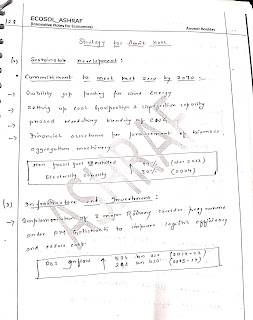 ECOSOL_ASHRAF
(Innovative Notes for Economics)
Answer Booklet
Strategy for Amrit Kaal
Sustainable Development :
Commitment to meet Net zero by 2070 :-
→ Viability gap funding for wind Energy
→ Setting up coal Gasification & liquefaction capacity
→ phased Mandatory blending of CNG
→ Financial assistance for procurement of biomass
aggregation machinery
Non fossil fuel
Electricity capacity ↑
Infrastructure and Investment :
→ Implementation of 3 major Railway corridor programme
under PM Gatishakti to improve logistic efficiency
and reduce cost
FDI Inflow ↑
ASHRAF